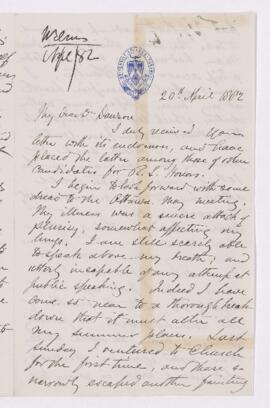 Wilson
Apl/82
20th April 1882
My Dear Dr Dawson
I duly received your
letter with its enclosure, and have
placed the latter among those of other
Candidates for R.S. Honors.
I begin to look forward with some
dread to the Ottawa May meeting.
My illness was a severe attack of
pleurisy, somewhat affecting my
lungs. I am still scarcely able
to speak above my breath; and
utterly incapable of any attempt at
public speaking. Indeed I have
come so near to a thorough break
down that it must alter all
my summer plans. Last
Sunday I ventured to Church
for the first time, and there so
narrowly escaped another fainting